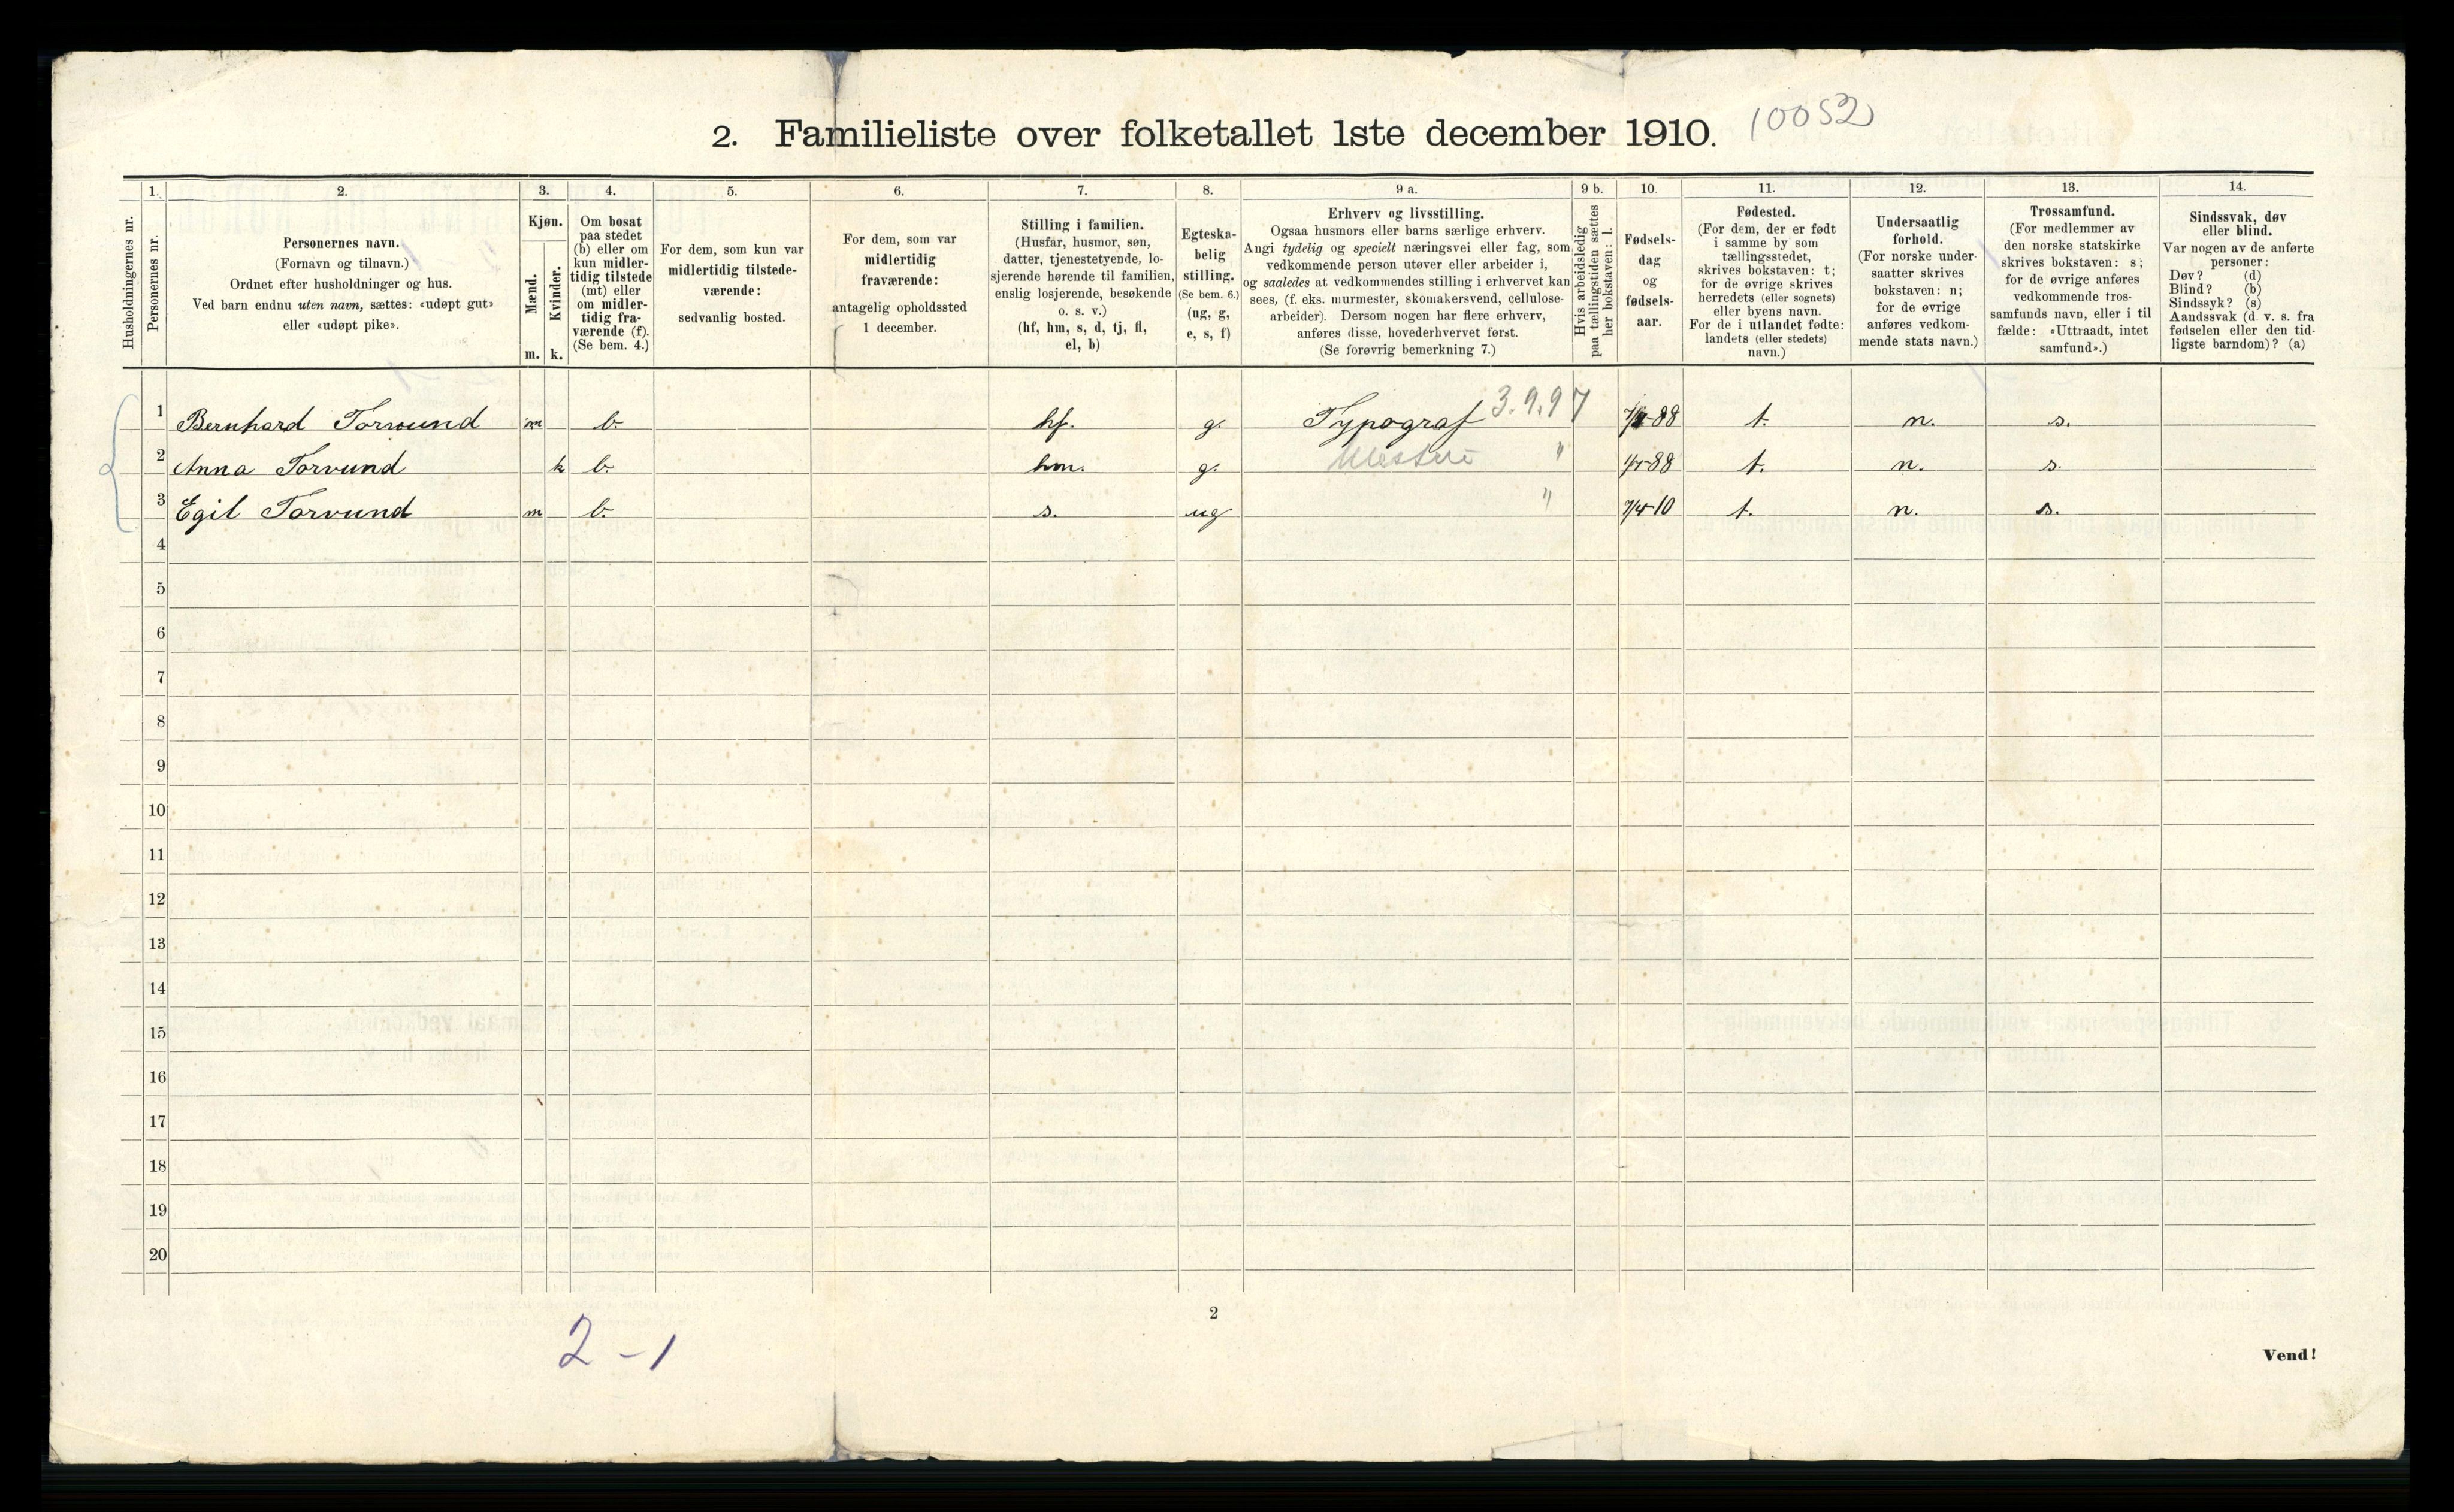 2. Familieliste over folketallet 1ste december 1910. 10052
Husholdningernes nr.
1. Personernes nr.
2. Personernes navn.
(Fornavn og tilnavn.)
Ordnet efter husholdninger og hus.
Ved barn endnu uten navn, sættes: «udøpt gut»
eller «udøpt pike».
3. Kjøn.
Mænd. Kvinder.
m. k.
4. Om bosat
paa stedet
(b) eller om
kun midler-
tidig tilstede
(mt) eller
om midler-
tidig fra-
værende (f).
(Se bem. 4.)
5. For dem, som kun var
midlertidig tilstede-
værende:
sedvanlig bosted.
6. For dem, som var
midlertidig
fraværende:
antagelig opholdssted
1 december.
7. Stilling i familien.
(Husfar, husmor, søn,
datter, tjenestetyende, lo-
sjerende hørende til familien,
enslig losjerende, besøkende
o. s. v.)
(hf, hm, s, d, tj, fl,
el, b)
8. Egteska-
belig
stilling.
(Se bem. 6.)
(ug, g,
e, s, f)
9 a. Erhverv og livsstilling.
Ogsaa husmors eller barns særlige erhverv.
Angi tydelig og specielt næringsvei eller fag, som
vedkommende person utøver eller arbeider i,
og saaledes at vedkommendes stilling i erhvervet kan
sees, (f. eks. murmester, skomakersvend, cellulose-
arbeider). Dersom nogen har flere erhverv,
anføres disse, hovederhvervet først.
(Se forøvrig bemerkning 7.)
9 b. Hvis arbeidsledig
paa tællingstiden sættes
her bokstaven: l.
10. Fødsels-
dag
og
fødsels-
aar.
11. Fødested.
(For dem, der er født
i samme by som
tællingsstedet,
skrives bokstaven: t;
for de øvrige skrives
herredets (eller sognets)
eller byens navn.
For de i utlandet fødte:
landets (eller stedets)
navn.)
12. Undersaatlig
forhold.
(For norske under-
saatter skrives
bokstaven: n;
for de øvrige
anføres vedkom-
mende stats navn.)
13. Trossamfund.
(For medlemmer av
den norske statskirke
skrives bokstaven: s;
for de øvrige anføres
vedkommende tros-
samfunds navn, eller i til
fælde: «Uttraadt, intet
samfund».)
14. Sindssvak, døv
eller blind.
Var nogen av de anførte
personer:
Døv? (d)
Blind? (b)
Sindssyk? (s)
Aandssvak (d. v. s. fra
fødselen eller den tid-
ligste barndom)? (a)
1 Bernhard Torvund m b. hf. g. Typograf 3.9.97 88 t. n. s.
2 Anna Torvund k b. hm. g. " 88 t. n. s.
3 Egil Torvund m b. s. ug " 7/4-10 t. n. s.
4
5
6
7
8
9
10
11
12
13
14
15
16
17
18
19
20
2
2-1
Vend!